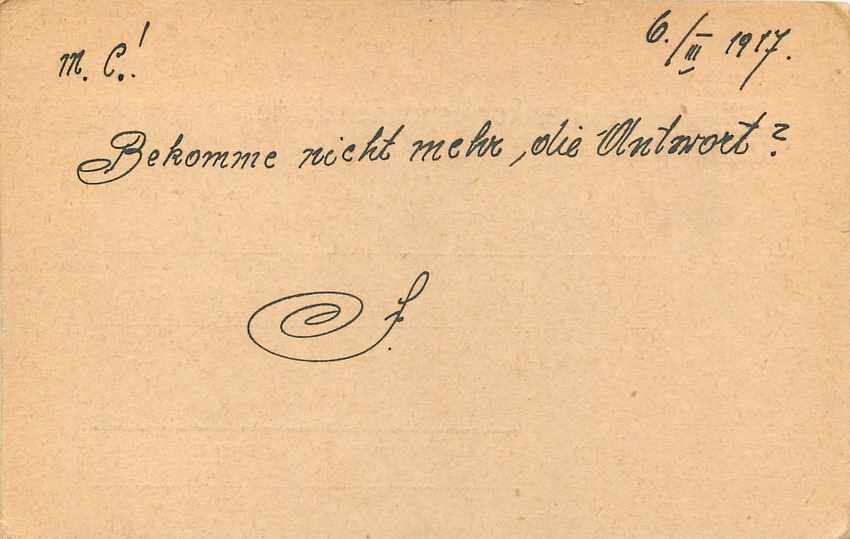 6./III 1917.
M. C.!
Bekomme nicht mehr, die Antwort?
J.